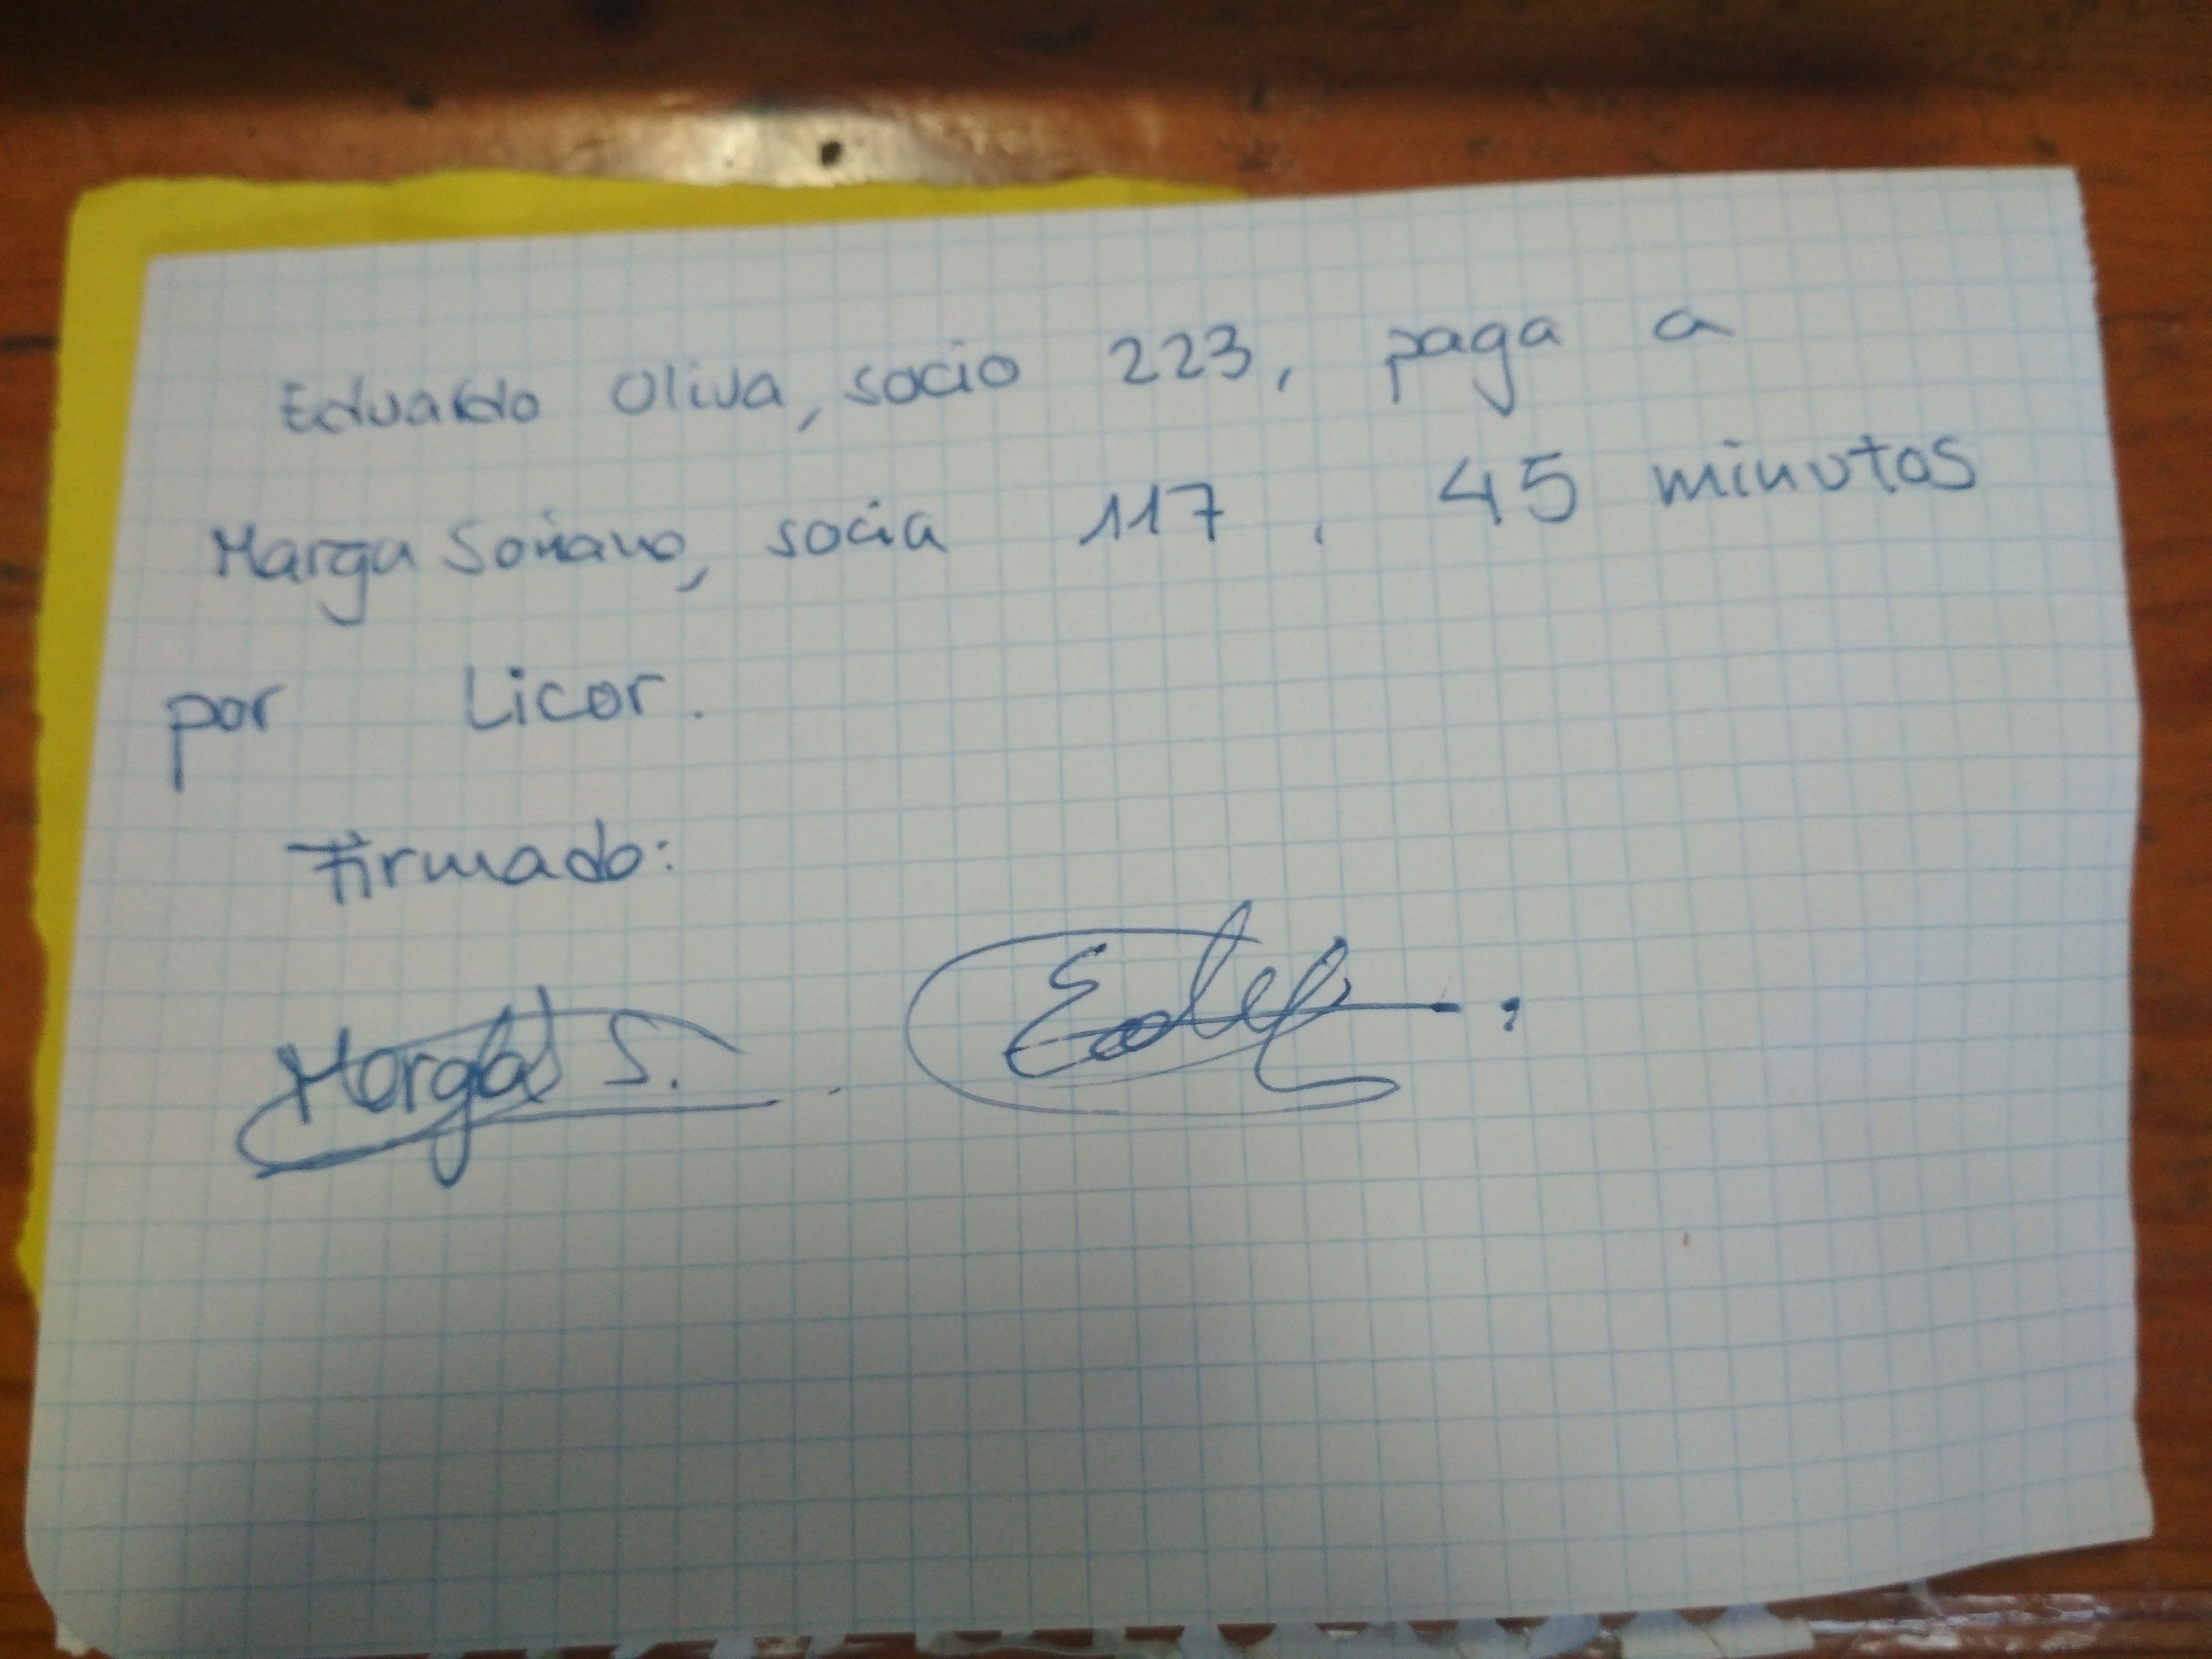 Eduardo Oliva, socio 223, paga a
Marga Soriano, socia 117, 45 minutos
por Licor.
Firmado:
Marga S.